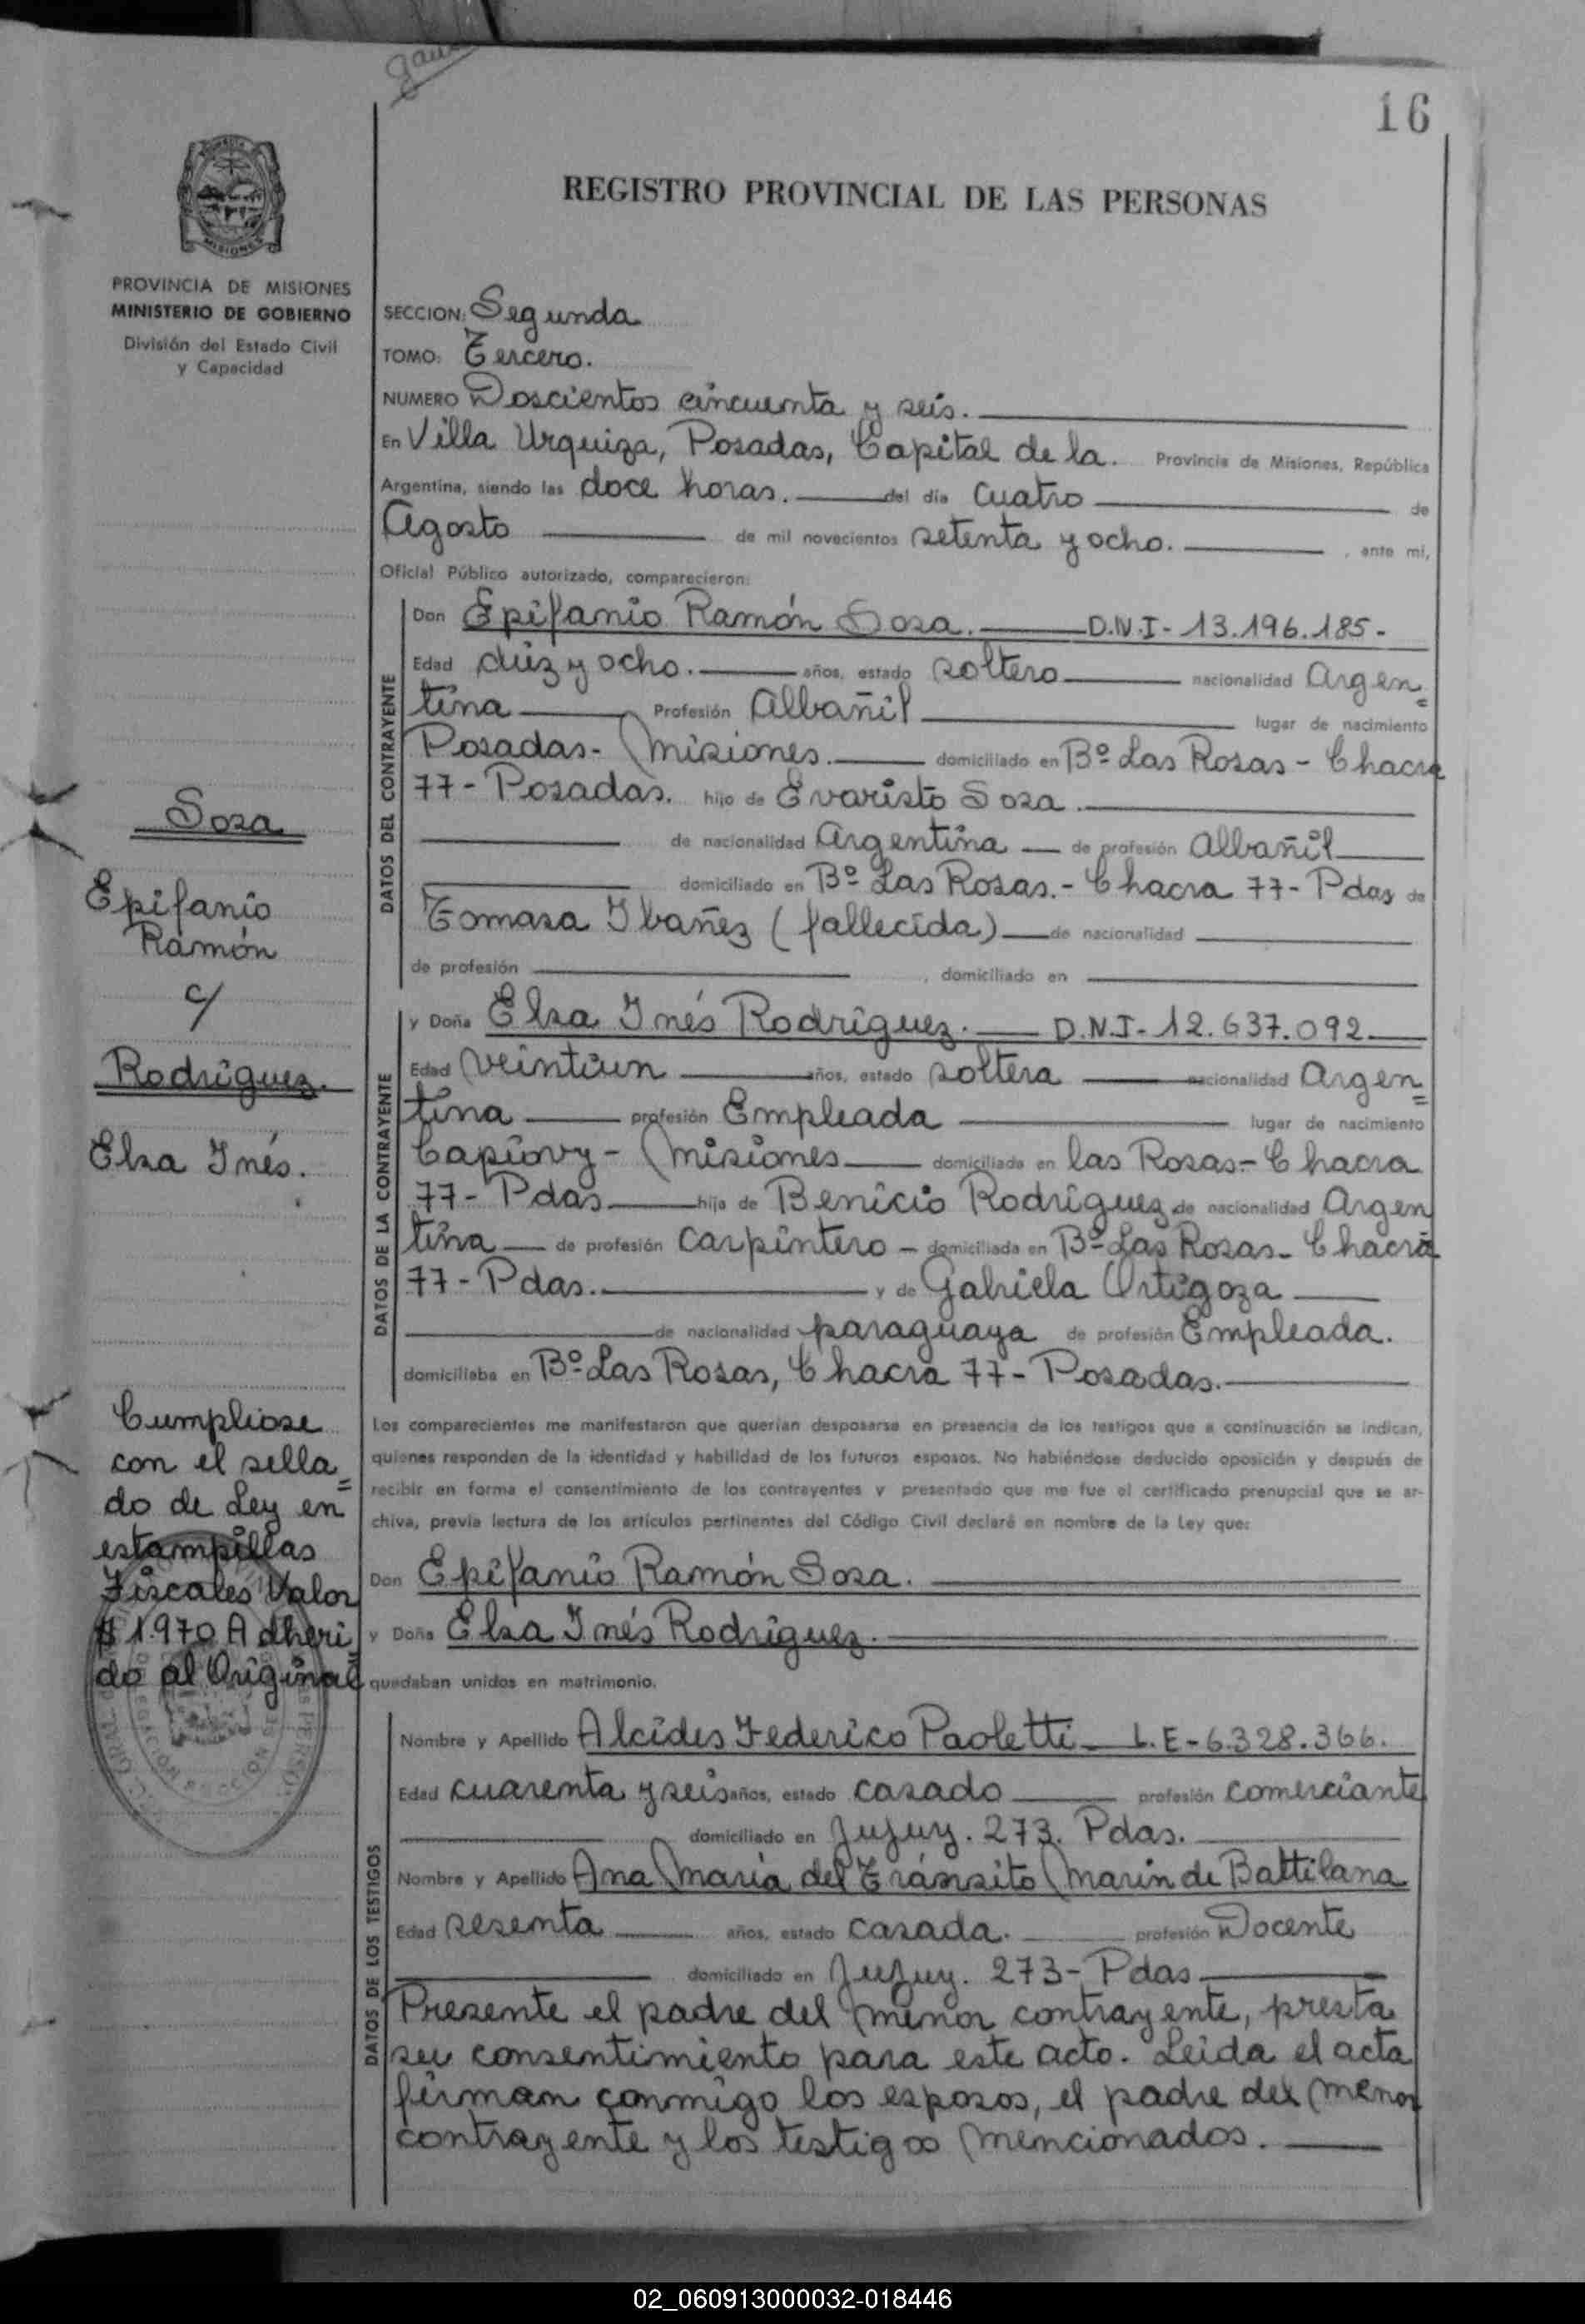 16
REGISTRO PROVINCIAL DE LAS PERSONAS
MISIONES
PROVINCIA DE MISIONES
MINISTERIO DE GOBIERNO
División del Estado Civil
y Capacidad
SECCION: Segunda
TOMO: Tercero.
NUMERO Doscientos cincuenta y seis.
En Villa Urquiza, Posadas, Capital de la. Provincia de Misiones, República
Argentina, siendo las doce horas. del día cuatro de
Agosto de mil novecientos setenta y ocho. , ante mi,
Oficial Público autorizado, comparecieron:
DATOS DEL CONTRAYENTE
Don Epifanio Ramón Sosa. D.N.I- 13.196.185.-
Edad diez y ocho. años, estado soltero nacionalidad Argen=
tina Profesión Albañil lugar de nacimiento
Posadas- Misiones. domiciliado en Bº Las Rosas - Chacra
77- Posadas. hijo de Evaristo Sosa.
de nacionalidad Argentina de profesión Albañil
domiciliado en Bº Las Rosas.- Chacra 77- Pdas de
Tomasa Ibañez (fallecida) de nacionalidad
de profesión , domiciliado en
DATOS DE LA CONTRAYENTE
y Doña Elsa Inés Rodríguez. D.N.I- 12.637.092
Edad veintiun años, estado soltera nacionalidad Argen=
tina profesión Empleada lugar de nacimiento
Capiovy- Misiones domiciliada en las Rosas- Chacra
77- Pdas hija de Benicio Rodríguez de nacionalidad Argen
tina de profesión carpintero - domiciliada en Bº Las Rosas- Chacra
77- Pdas. y de Gabriela Ortigoza
de nacionalidad paraguaya de profesión Empleada.
domiciliaba en Bº Las Rosas, Chacra 77- Posadas.
Los comparecientes me manifestaron que querían desposarse en presencia de los testigos que a continuación se indican,
quienes responden de la identidad y habilidad de los futuros esposos. No habiéndose deducido oposición y después de
recibir en forma el consentimiento de los contrayentes y presentado que me fue el certificado prenupcial que se ar-
chiva, previa lectura de los artículos pertinentes del Código Civil declaré en nombre de la Ley que:
Don Epifanio Ramón Sosa.
y Doña Elsa Inés Rodríguez.
quedaban unidos en matrimonio.
DATOS DE LOS TESTIGOS
Nombre y Apellido Alcides Federico Paoletti- L.E- 6.328.366.
Edad cuarenta y seis años, estado casado profesión comerciante
domiciliado en Jujuy. 273. Pdas.
Nombre y Apellido Ana María del Tránsito Marin de Battilana
Edad sesenta años, estado casada. profesión Docente
domiciliado en Jujuy. 273- Pdas
Presente el padre del menor contrayente, presta
su consentimiento para este acto. Leida el acta
firman conmigo los esposos, el padre del menor
contrayente y los testigos mencionados.
Sosa
Epifanio
Ramón
c/
Rodríguez.
Elsa Inés.
Cumpliose
con el sella=
do de Ley en
estampillas
Fiscales Valor
$ 1.970 Adheri
do al Original
02_060913000032-018446